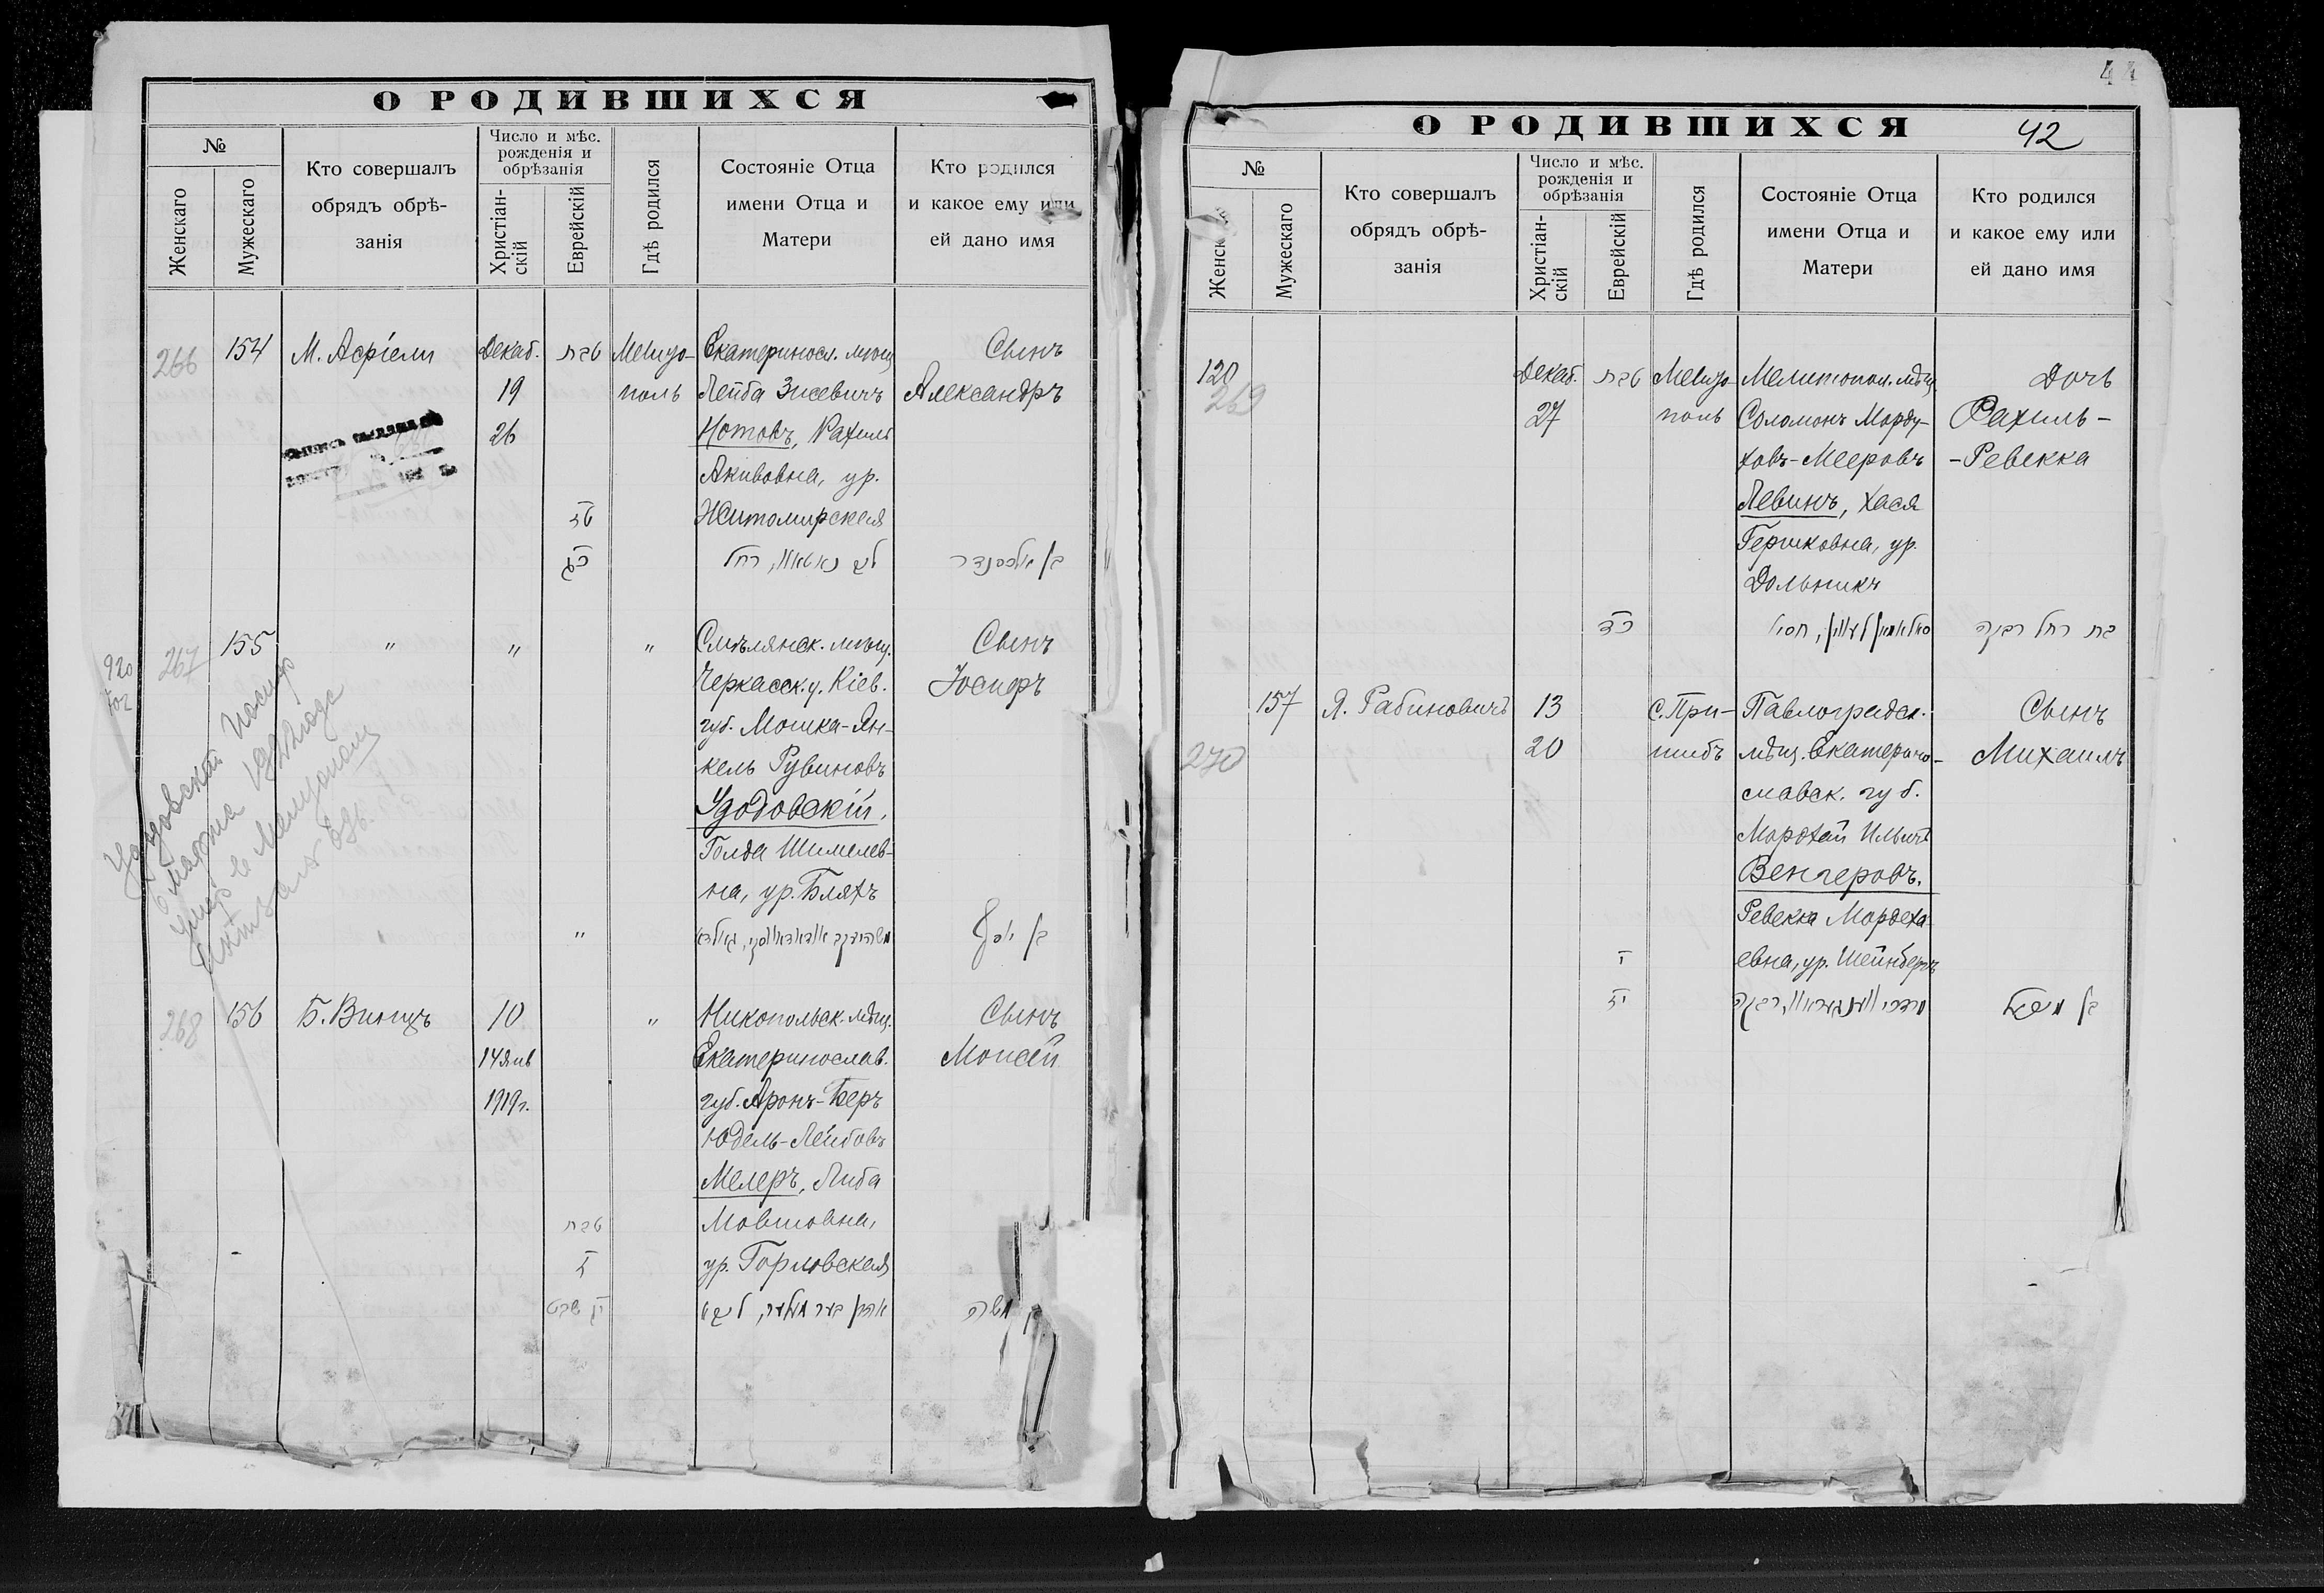 О РОДИВШИХСЯ
№
Женскаго
Мужескаго
Кто совершалъ
обрядъ обрѣ-
занія
Число и мѣс.
рожденія и
обрѣзанія
Христіан-
скій
Еврейскій
Гдѣ родился
Состояніе Отца
имени Отца и
Матери
Кто родился
и какое ему или
ей дано имя
266
154
М. Асріели
Декаб.
19
26
טבת
Мелито-
поль
Екатериносл. мѣщ.
Лейба Зисевичъ
Нотовъ, Рахиль
Акивовна, ур.
Житомирская
Сынъ
Александръ
בן אלכסנדר
920
267
155
"
"
"
Смѣлянск. мѣщ.
Черкасск. у. Кіев.
губ. Мошка-Ян-
кель Рувиновъ
Удодовскій,
Голда Шмилев-
на, ур. Бляхъ
Сынъ
Іосифъ
"
בן יוסף
268
156
Б. Винцъ
10
14 Янв
1919г.
"
Никопольск. мѣщ.
Екатеринослав.
губ. Аронъ-Беръ
Юдель-Лейбовъ
Мелеръ, Либа
Мовшовна,
ур. Горловская
Сынъ
Моисей
טבת
שבט
משה
44
О РОДИВШИХСЯ
42
№
Мужескаго
Кто совершалъ
обрядъ обрѣ-
занія
Число и мѣс.
рожденія и
обрѣзанія
Христіан-
скій
Еврейскій
Гдѣ родился
Состояніе Отца
имени Отца и
Матери
Кто родился
и какое ему или
ей дано имя
120
269
Декаб.
27
טבת
Мелито-
поль
Мелитопол. мѣщ.
Соломонъ Морду-
ховъ-Мееровъ
Левинъ, Хася
Гершковна, ур.
Дольникъ
Дочь
Рахиль-
-Ревекка
כד
בת רחל רבקה
270
157
Я. Рабиновичъ
13
20
С. При-
шибъ
Павлоградск.
мѣщ. Екатерино-
славск. губ.
Мордхай Ильичъ
Венгеровъ,
Ревекка Мордеха-
евна, ур. Шейнбергъ
Сынъ
Михаилъ
י
בן מיכאל